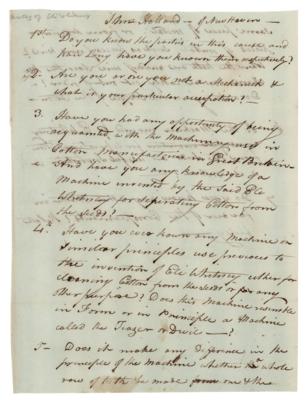 Holland — of New Haven —
1st Do you know the parties in this cause and
how long have you known them respectively?
2d Are you or are you not a Mechanick &
what is your particular occupation?
3. Have you had any opportunity of being
acquainted with the Machinery used in
Cotton Manufactories in Great Britain —
And have you any knowledge of a
Machine invented by the said Eli
Whitney for separating Cotton from
the seeds?
4th Have you ever known any Machine on
similar principles use previous to
the invention of Eli Whitney either for
cleaning Cotton from the seeds or for any
other purpose? Does this Machine resemble
in Form or in Principle a Machine
called the Teazer or Devil —?
5— Does it make any difference in the
principle of the Machine whether a whole
row of teeth be made from one & the